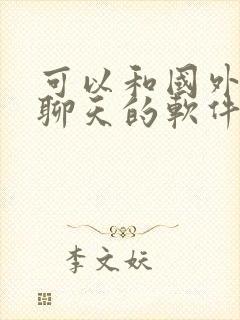 可以和國外
聊天的軟件
李文妖